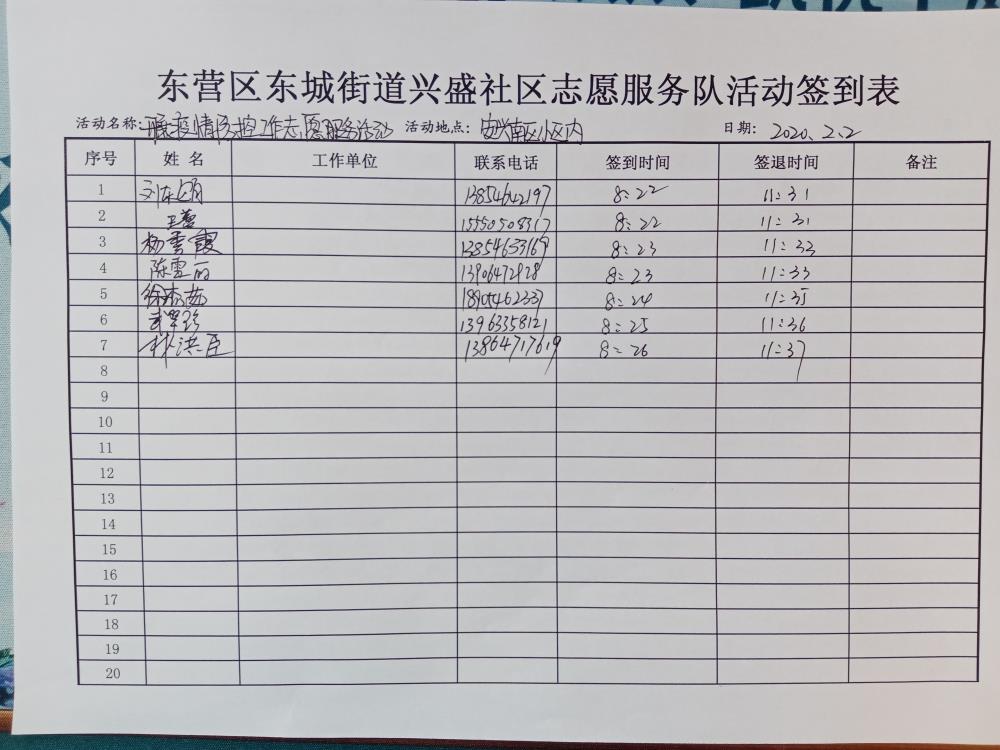 东营区东城街道兴盛社区志愿服务队活动签到表
活动名称:疫情防控工作志愿服务活动 活动地点:安兴南区小区内 日期: 2020.2.2
序号 姓名 工作单位 联系电话 签到时间 签退时间 备注
1 刘东 13854642197 8:22 11:31
2 王蕾 15550508317 8:22 11:31
3 杨秀霞 13854653169 8:23 11:33
4 陈雪丽 13906472928 8:23 11:33
5 徐 18905462337 8:24 11:35
6 13963358121 8:25 11:36
7 林洪臣 13864717619 8:26 11:37
8
9
10
11
12
13
14
15
16
17
18
19
20